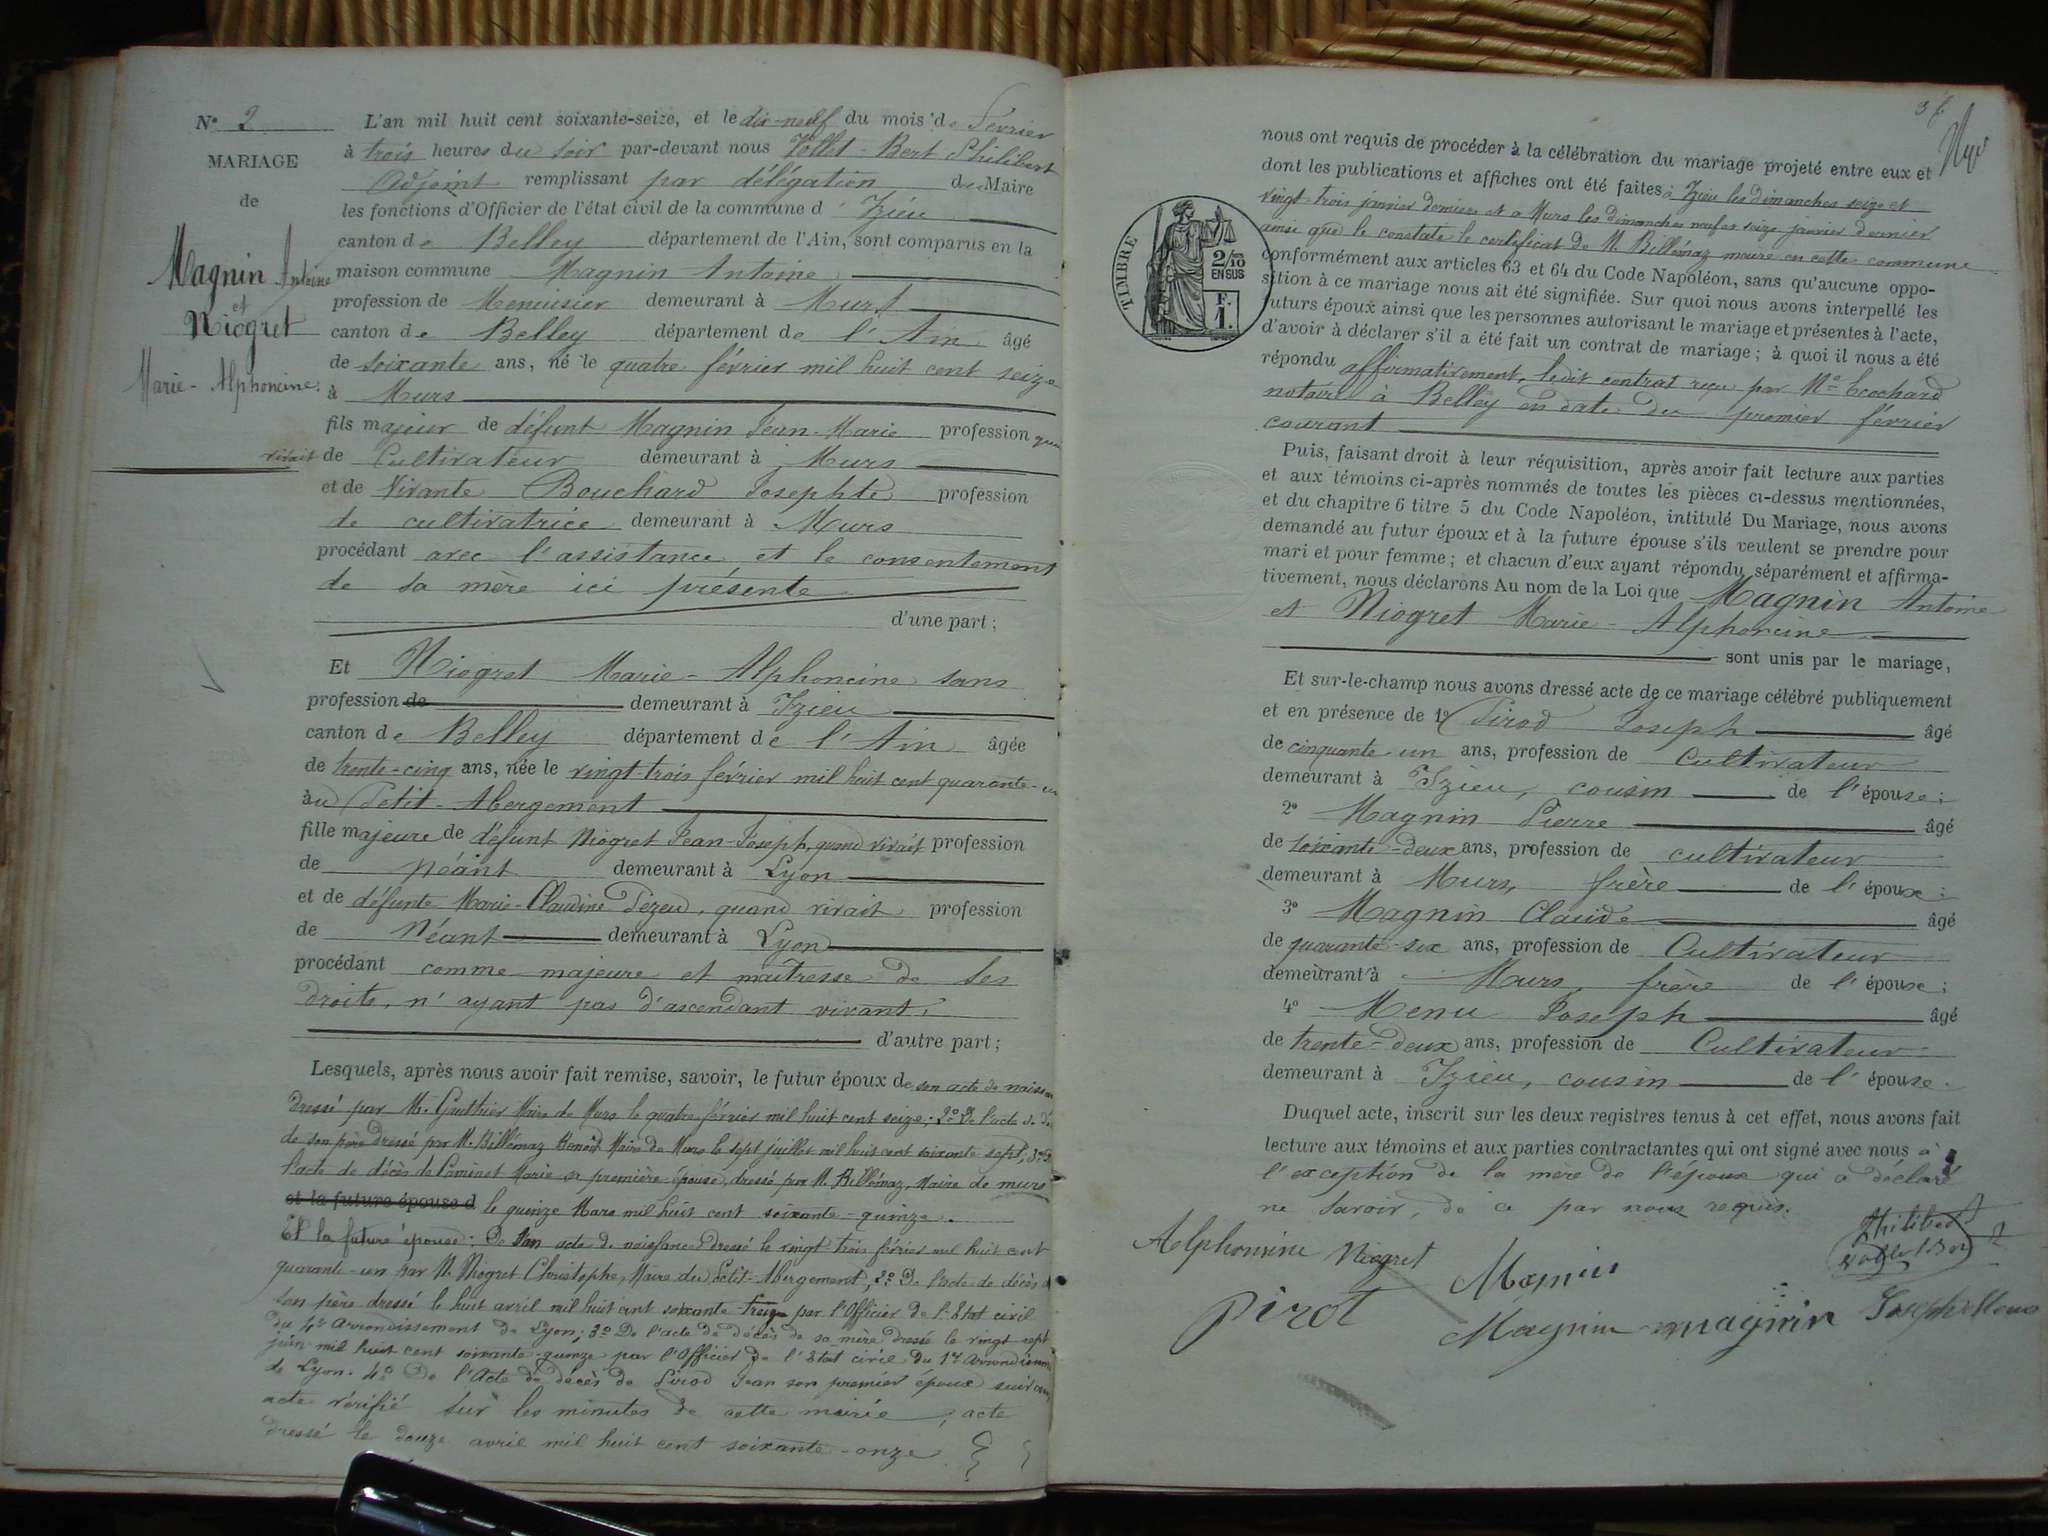 N° 2
MARIAGE
de
Magnin Antoine
et
Niogret
Marie-Alphoncine.
L'an mil huit cent soixante-seize, et le dix-neuf du mois de Février
à trois heures du soir par-devant nous Vollet-Bert Philibert
Adjoint remplissant par délégation du Maire
les fonctions d'Officier de l'état civil de la commune d'Izieu
canton de Belley département de l'Ain, sont comparus en la
maison commune Magnin Antoine
profession de Menuisier demeurant à Murs
canton de Belley département de l'Ain âgé
de soixante ans, né le quatre février mil huit cent seize
à Murs
fils majeur de défunt Magnin Jean-Marie profession quand
vivait de Cultivateur demeurant à Murs
et de vivante Bouchard Josephte profession
de cultivatrice demeurant à Murs
procédant avec l'assistance et le consentement
de sa mère ici présente
d'une part ;
Et Niogret Marie-Alphoncine sans
profession de demeurant à Izieu
canton de Belley département de l'Ain âgée
de trente-cinq ans, née le vingt-trois février mil huit cent quarante-un
au Petit-Abergement
fille majeure de défunt Niogret Jean-Joseph, quand vivait profession
de Néant demeurant à Lyon
et de défunte Marie-Claudine Pezeu, quand vivait profession
de Néant demeurant à Lyon
procédant comme majeure et maîtresse de ses
droits, n'ayant pas d'ascendant vivant.
d'autre part ;
Lesquels, après nous avoir fait remise, savoir, le futur époux de son acte de naissan
dressé par M. Gauthier Maire de Murs le quatre février mil huit cent seize; 2° De l'acte de dé
de son père dressé par M. Billémaz Benoît Maire de Murs le sept juillet mil huit cent soixante sept; 3° De
l'acte de décès de Marie sa première épouse, dressé par M. Billémaz, Maire de murs
et la future épouse d le quinze Mars mil huit cent soixante-quinze.
Et la future épouse: De son acte de naissance dressé le vingt trois février mil huit cent
quarante-un par M. Niogret Christophe, Maire du Petit-Abergement; 2° De l'acte de décès de
son père dressé le huit avril mil huit cent soixante-treize par l'Officier de l'Etat civil
du 4e Arrondissement de Lyon; 3° De l'acte de décès de sa mère dressé le vingt sept
juin mil huit cent soixante-quinze par l'Officier de l'Etat civil du 1er Arrondissement
de Lyon. 4° De l'Acte de décès de Pirod Jean son premier époux suivant
acte vérifié sur les minutes de cette mairie, acte
dressé le douze avril mil huit cent soixante-onze.
TIMBRE
2/10
EN SUS
F.
1.
nous ont requis de procéder à la célébration du mariage projeté entre eux et
dont les publications et affiches ont été faites à Izieu les dimanches seize et
vingt-trois janvier dernier et à Murs les dimanches neuf et seize janvier dernier
ainsi que le constate le certificat de M. Billémaz maire en cette commune.
conformément aux articles 63 et 64 du Code Napoléon, sans qu'aucune oppo-
sition à ce mariage nous ait été signifiée. Sur quoi nous avons interpellé les
futurs époux ainsi que les personnes autorisant le mariage et présentes à l'acte,
d'avoir à déclarer s'il a été fait un contrat de mariage ; à quoi il nous a été
répondu affirmativement, ledit contrat reçu par Me Ecochard
notaire à Belley en date du premier février
courant
Puis, faisant droit à leur réquisition, après avoir fait lecture aux parties
et aux témoins ci-après nommés de toutes les pièces ci-dessus mentionnées,
et du chapitre 6 titre 5 du Code Napoléon, intitulé Du Mariage, nous avons
demandé au futur époux et à la future épouse s'ils veulent se prendre pour
mari et pour femme ; et chacun d'eux ayant répondu séparément et affirma-
tivement, nous déclarons Au nom de la Loi que Magnin Antoine
et Niogret Marie-Alphoncine
sont unis par le mariage,
Et sur-le-champ nous avons dressé acte de ce mariage célébré publiquement
et en présence de 1° Pirod Joseph âgé
de cinquante-un ans, profession de Cultivateur
demeurant à Izieu, cousin de l'épouse ;
2° Magnin Pierre âgé
de soixante-deux ans, profession de cultivateur
demeurant à Murs, frère de l'époux ;
3° Magnin Claude âgé
de quarante-six ans, profession de Cultivateur
demeurant à Murs, frère de l'époux ;
4° Menu Joseph âgé
de trente-deux ans, profession de Cultivateur
demeurant à Izieu, cousin de l'épouse.
Duquel acte, inscrit sur les deux registres tenus à cet effet, nous avons fait
lecture aux témoins et aux parties contractantes qui ont signé avec nous à
l'exception de la mère de l'époux qui a déclaré
ne savoir, de ce par nous requis.
Alphonsine Niogret Magnin Philibert Vollet Bert
Pirot Magnin magnin Joseph Menu